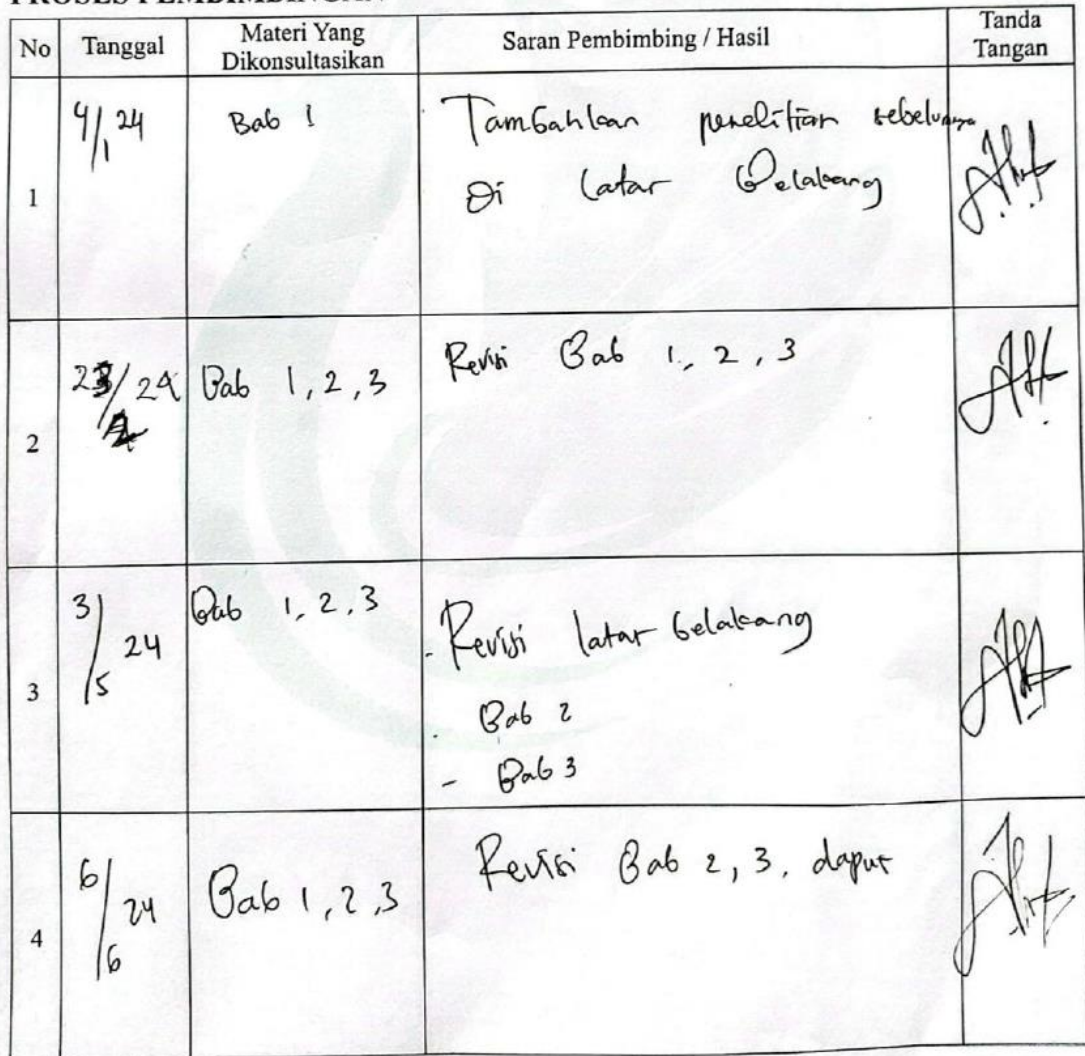 PROSES PEMBIMBINGAN
No Tanggal Materi Yang Dikonsultasikan Saran Pembimbing / Hasil Tanda Tangan
1 4/1 24 Bab 1 Tambahkan penelitian sebelumnya
di latar belakang
2 23/2 24 Bab 1, 2, 3 Revisi Bab 1, 2, 3
3 3/5 24 Bab 1, 2, 3 - Revisi latar belakang
- Bab 2
- Bab 3
4 6/6 24 Bab 1, 2, 3 Revisi Bab 2, 3, dapus